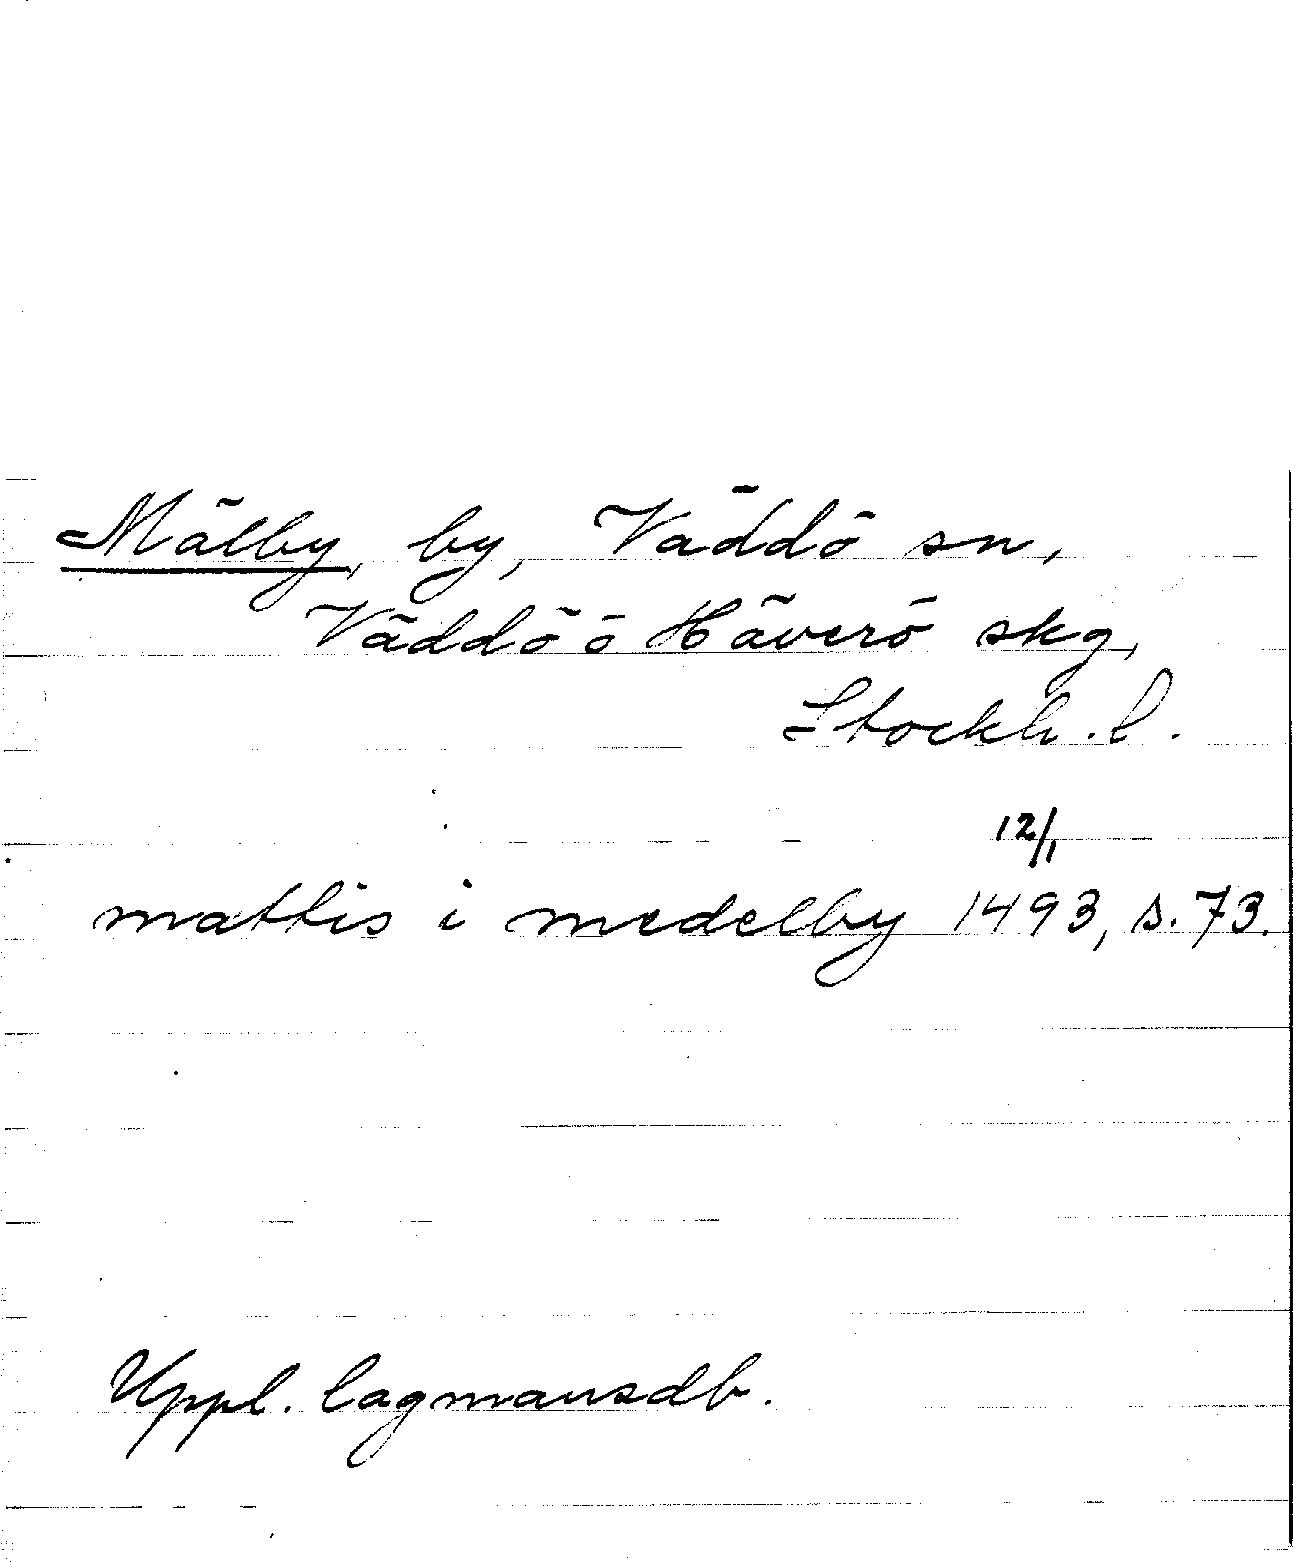 Mälby, by, Väddö sn,
Väddö o Häverö skg,
Stockh. l.
12/1
mattis i medelby 1493, s. 73.
Uppl. lagmansdb.